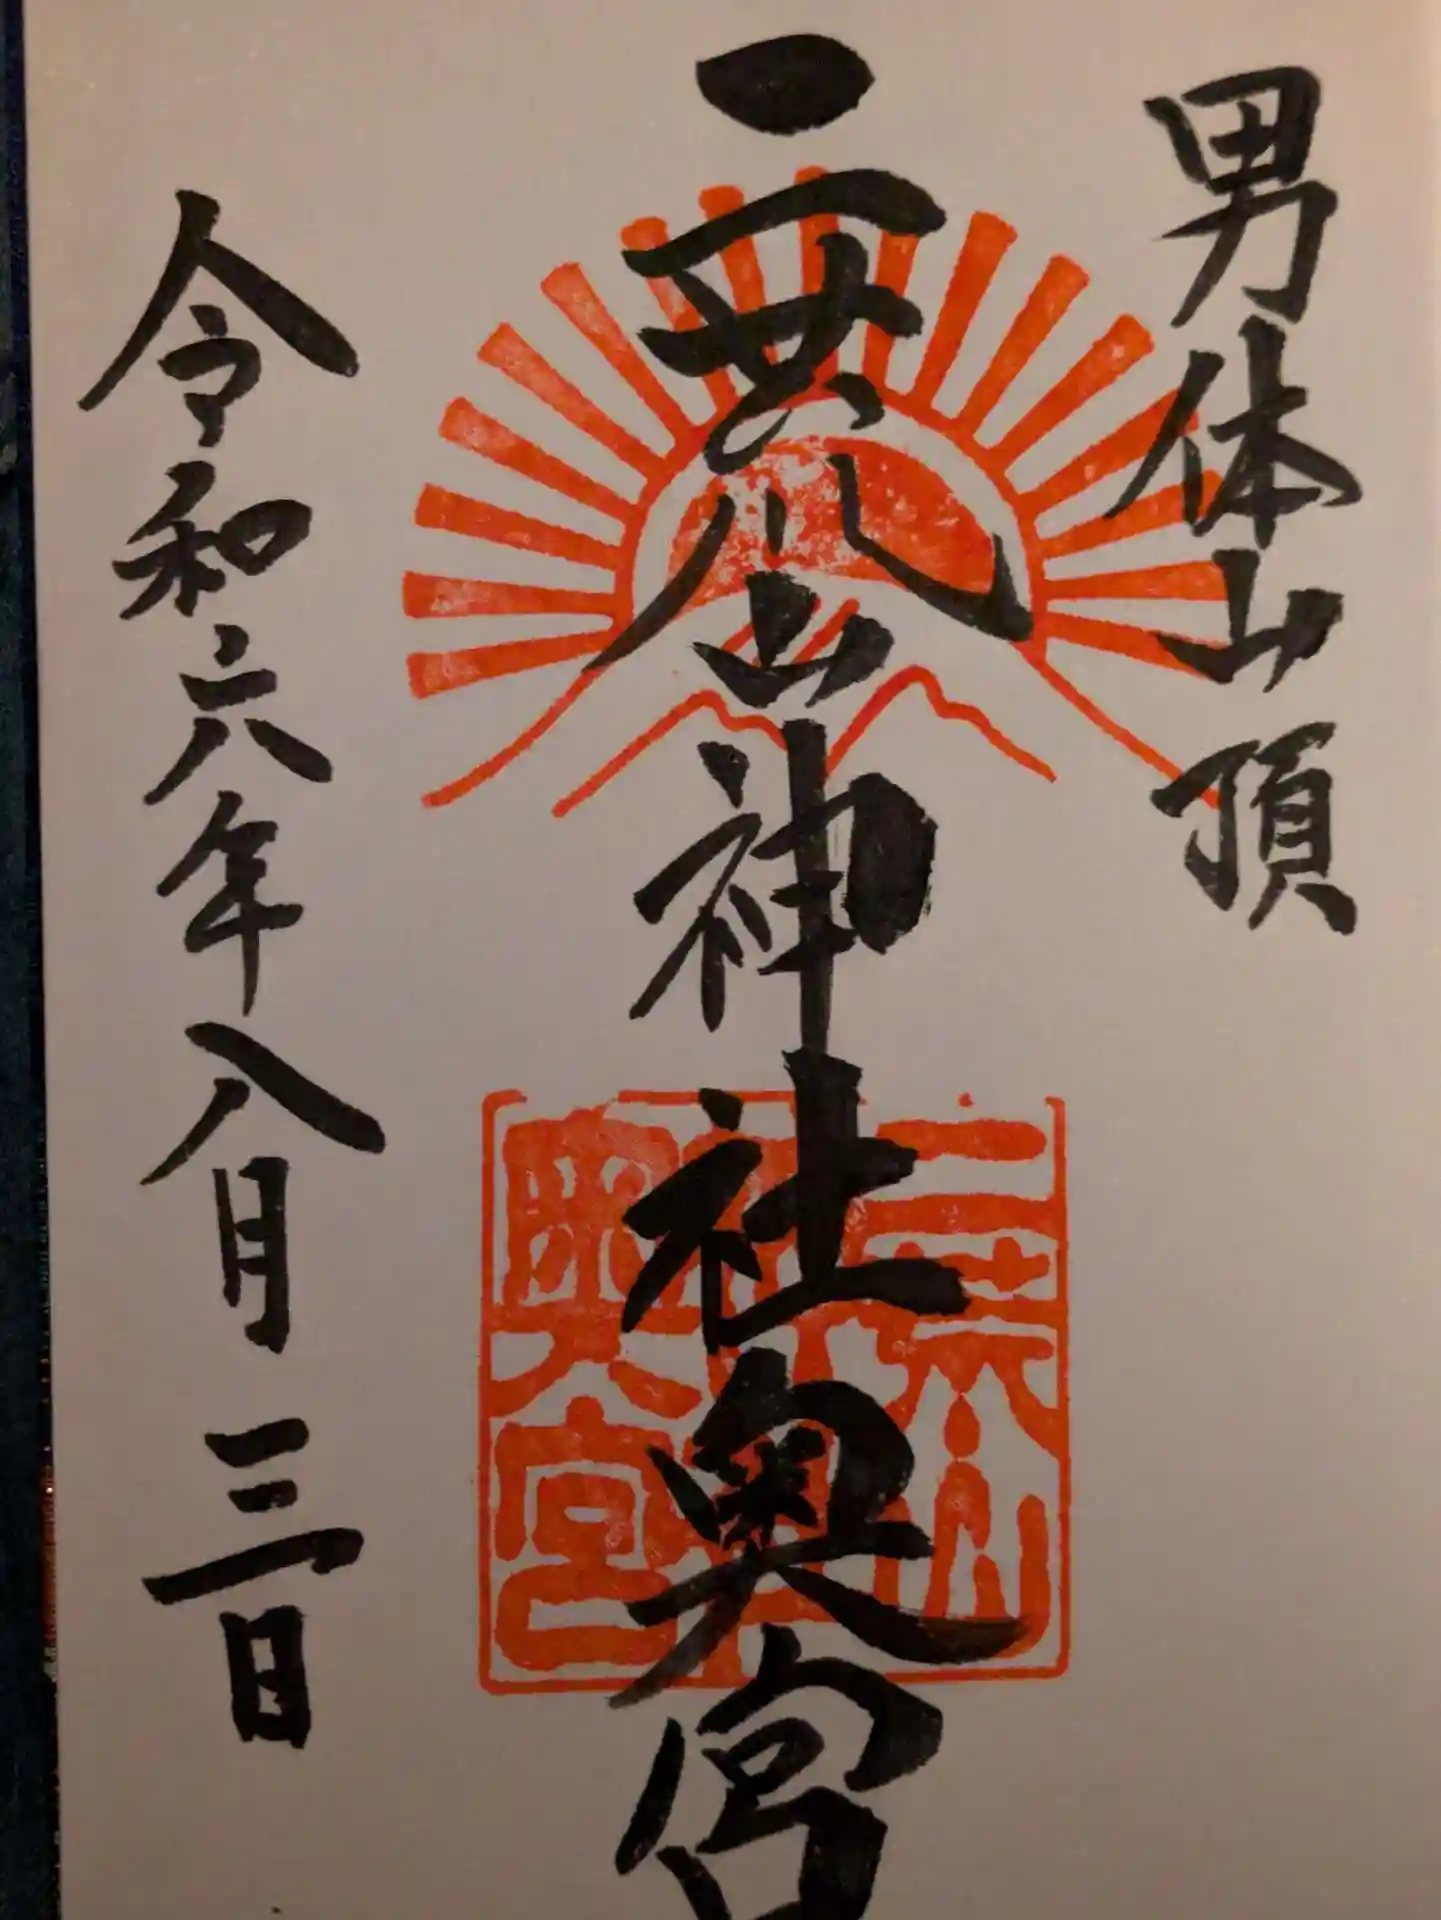 男体山頂
二荒山神社奥宮
令和六年八月三日
二荒山
奥宮